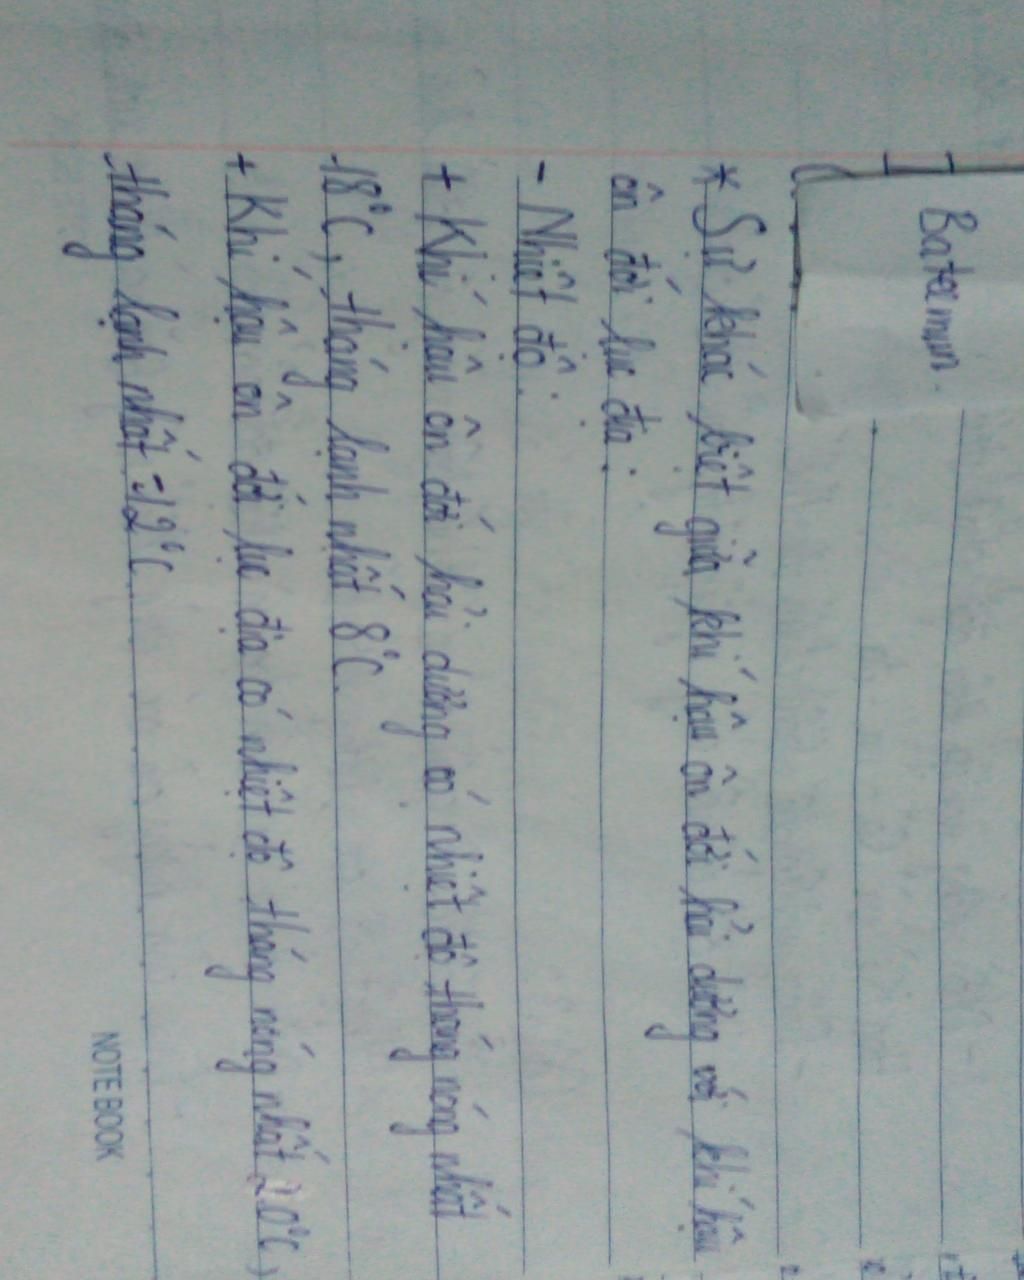 Batermun.
* Sự khác biệt giữa khí hậu ôn đới hải dương với khí hậu
ôn đới lục địa.
- Nhiệt độ:
+ Khí hậu ôn đới hải dương có nhiệt độ tháng nóng nhất
18°C, tháng lạnh nhất 8°C.
+ Khí hậu ôn đới lục địa có nhiệt độ tháng nóng nhất 20°C,
tháng lạnh nhất -12°C
NOTE BOOK